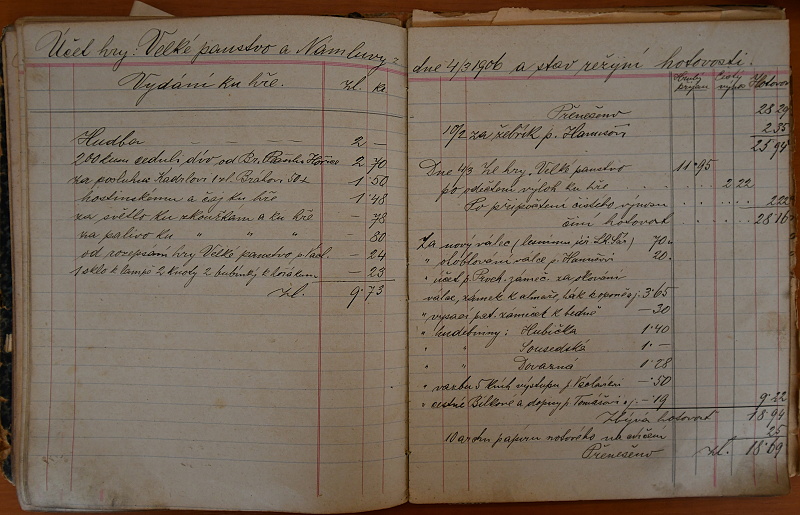 Účet hry: Velké panstvo a Námluvy
Vydání ku hře. zl. kr
Hudba — — — — 2 —
200 kum cedulí div. od Br. Hořice 2 70
za posluhu Kadilovi 1 zl. 50 1 50
hostinskému a čaj ku hře 1 48
za světlo ku zkouškám a ku hře — 78
na palivo ku " " " 80
od rozepsání hry Velké panstvo — 24
1 sklo k lampě 2 knoty 2 — 23
zl. 9 73
dne 4/3 1906 a stav režijní hotovosti.
Hrubý příjem Čistý výnos Hotovost
Přenešeno 28 29
10/2 za žebřík p. Hanušovi 2 35
25 94
Dne 4/3 Ze hry "Velké panstvo 11 95
po odečtení výloh ku hře 2 22
Po připočtení čistého výnosu 2 22
činí hotovost 28 16
Za nový válec 70
" oloblování válce p. Hanušovi 20
" účet p. Proch. zámeč. za okování
válce, zámek k almaře, hák k oponě 3 65
" visací pat. zámeček k bedně — 30
" hudebniny: Hubička 1 40
" " Sousedská 1 —
" " Dovazná 1 28
" vazbu 5 knih výstupu p. — 50
" cestné Bílkové a dopisy p. Tomášovi — 19 9 22
Zbývá hotovost 18 94
10 archů papíru notového na cvičení 25
Přenešeno zl. 18 69